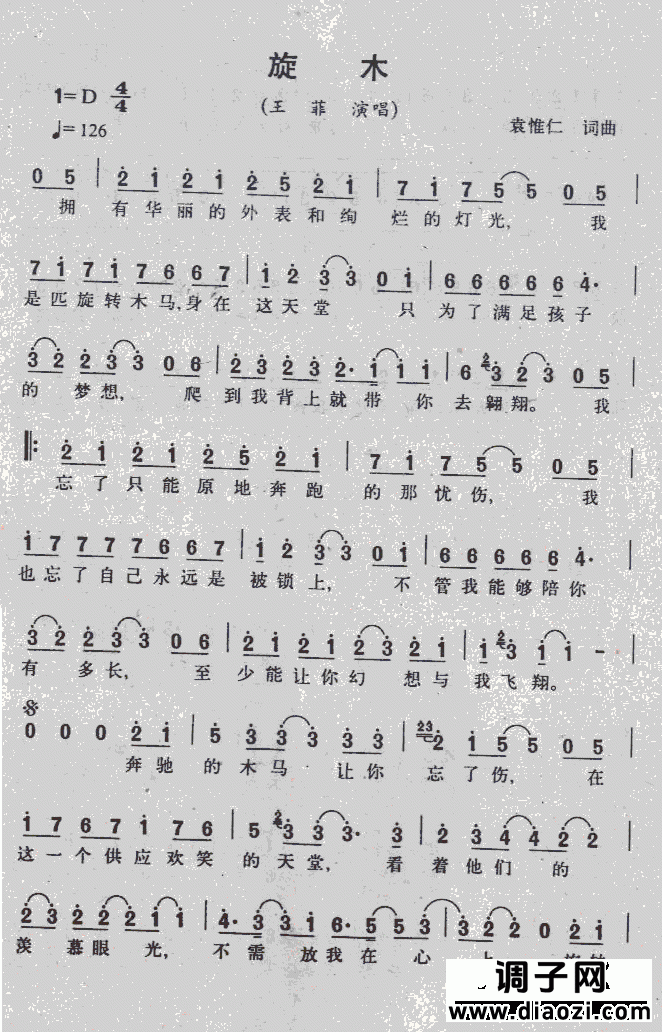 旋 木
1=D 4/4
(王 菲 演唱)
♩=126
袁惟仁 词曲
0 5 | 2 1 2 1 2 5 2 1 | 7 1 7 5 5 0 5 |
拥 有 华 丽 的 外 表 和 绚 烂 的 灯 光, 我
7 1 7 1 7 6 6 7 | 1 2 3 3 0 1 | 6 6 6 6 6 4· |
是 匹 旋 转 木 马,身 在 这 天 堂 只 为 了 满 足 孩 子
3 2 2 3 3 0 6 | 2 3 2 3 2· 1 1 1 | 6 2 3 2 3 0 5
的 梦 想, 爬 到 我 背 上 就 带 你 去 翱 翔。 我
‖: 2 1 2 1 2 5 2 1 | 7 1 7 5 5 0 5 |
忘 了 只 能 原 地 奔 跑 的 那 忧 伤, 我
1 7 7 7 7 6 6 7 | 1 2 3 3 0 1 | 6 6 6 6 6 4· |
也 忘 了 自 己 永 远 是 被 锁 上, 不 管 我 能 够 陪 你
3 2 2 3 3 0 6 | 2 1 2 1 2 3 2 1 | 1 2 3 1 1 – |
有 多 长, 至 少 能 让 你 幻 想 与 我 飞 翔。
𝄋
0 0 0 2 1 | 5 3 3 3 3 1 | 23 2 1 5 5 0 5 |
奔 驰 的 木 马 让 你 忘 了 伤, 在
1 7 6 7 1 7 6 7 | 5 2 3 3 3· 3 | 2 3 4 4 2 2 |
这 一 个 供 应 欢 笑 的 天 堂, 看 着 他 们 的
2 3 2 2 1 1 | 4· 3 3 1 6· 5 5 3 | 3 2 2 0 2 1
羡 慕 眼 光, 不 需 放 我 在 心 上
调子网
www.diaozi.com